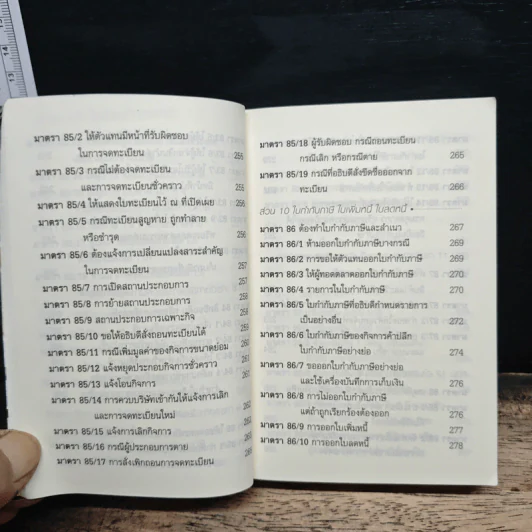 มาตรา 85/2 ให้ตัวแทนมีหน้าที่รับผิดชอบ
ในการจดทะเบียน 255
มาตรา 85/3 กรณีไม่ต้องจดทะเบียน
และการจดทะเบียนชั่วคราว 255
มาตรา 85/4 ให้แสดงใบทะเบียนไว้ ณ ที่เปิดเผย 256
มาตรา 85/5 กรณีทะเบียนสูญหาย ถูกทำลาย
หรือชำรุด 256
มาตรา 85/6 ต้องแจ้งการเปลี่ยนแปลงสาระสำคัญ
ในการจดทะเบียน 257
มาตรา 85/7 การเปิดสถานประกอบการ 257
มาตรา 85/8 การย้ายสถานประกอบการ
มาตรา 85/9 สถานประกอบเฉพาะกิจ
มาตรา 85/10 ขอให้อธิบดีสั่งถอนทะเบียนได้
มาตรา 85/11 กรณีเพิ่มมูลค่าของกิจการขนาดย่อม
มาตรา 85/12 แจ้งหยุดประกอบกิจการชั่วคราว
มาตรา 85/13 แจ้งโอนกิจการ
มาตรา 85/14 การควบบริษัทเข้ากันให้แจ้งการเลิก
และการจดทะเบียนใหม่
มาตรา 85/15 แจ้งการเลิกกิจการ
มาตรา 85/16 กรณีผู้ประกอบการตาย
มาตรา 85/17 การสั่งเพิกถอนการจดทะเบียน
มาตรา 85/18 ผู้รับผิดชอบ กรณีถอนทะเบียน
กรณีเลิก หรือกรณีตาย 265
มาตรา 85/19 กรณีที่อธิบดีสั่งขีดชื่อออกจาก
ทะเบียน 266
ส่วน 10 ใบกำกับภาษี ใบเพิ่มหนี้ ใบลดหนี้ •
มาตรา 86 ต้องทำใบกำกับภาษีและสำเนา 267
มาตรา 86/1 ห้ามออกใบกำกับภาษีบางกรณี 269
มาตรา 86/2 การขอให้ตัวแทนออกใบกำกับภาษี 269
มาตรา 86/3 ให้ผู้ทอดตลาดออกใบกำกับภาษี 270
มาตรา 86/4 รายการในใบกำกับภาษี 270
มาตรา 86/5 ใบกำกับภาษีที่อธิบดีกำหนดรายการ
เป็นอย่างอื่น 272
มาตรา 86/6 ใบกำกับภาษีของกิจการค้าปลีก
ใบกำกับภาษีอย่างย่อ 274
มาตรา 86/7 ขอออกใบกำกับภาษีอย่างย่อ
และใช้เครื่องบันทึกการเก็บเงิน 276
มาตรา 86/8 การไม่ออกใบกำกับภาษี
แต่ถ้าถูกเรียกร้องต้องออก 276
มาตรา 86/9 การออกใบเพิ่มหนี้ 277
มาตรา 86/10 การออกใบลดหนี้ 278